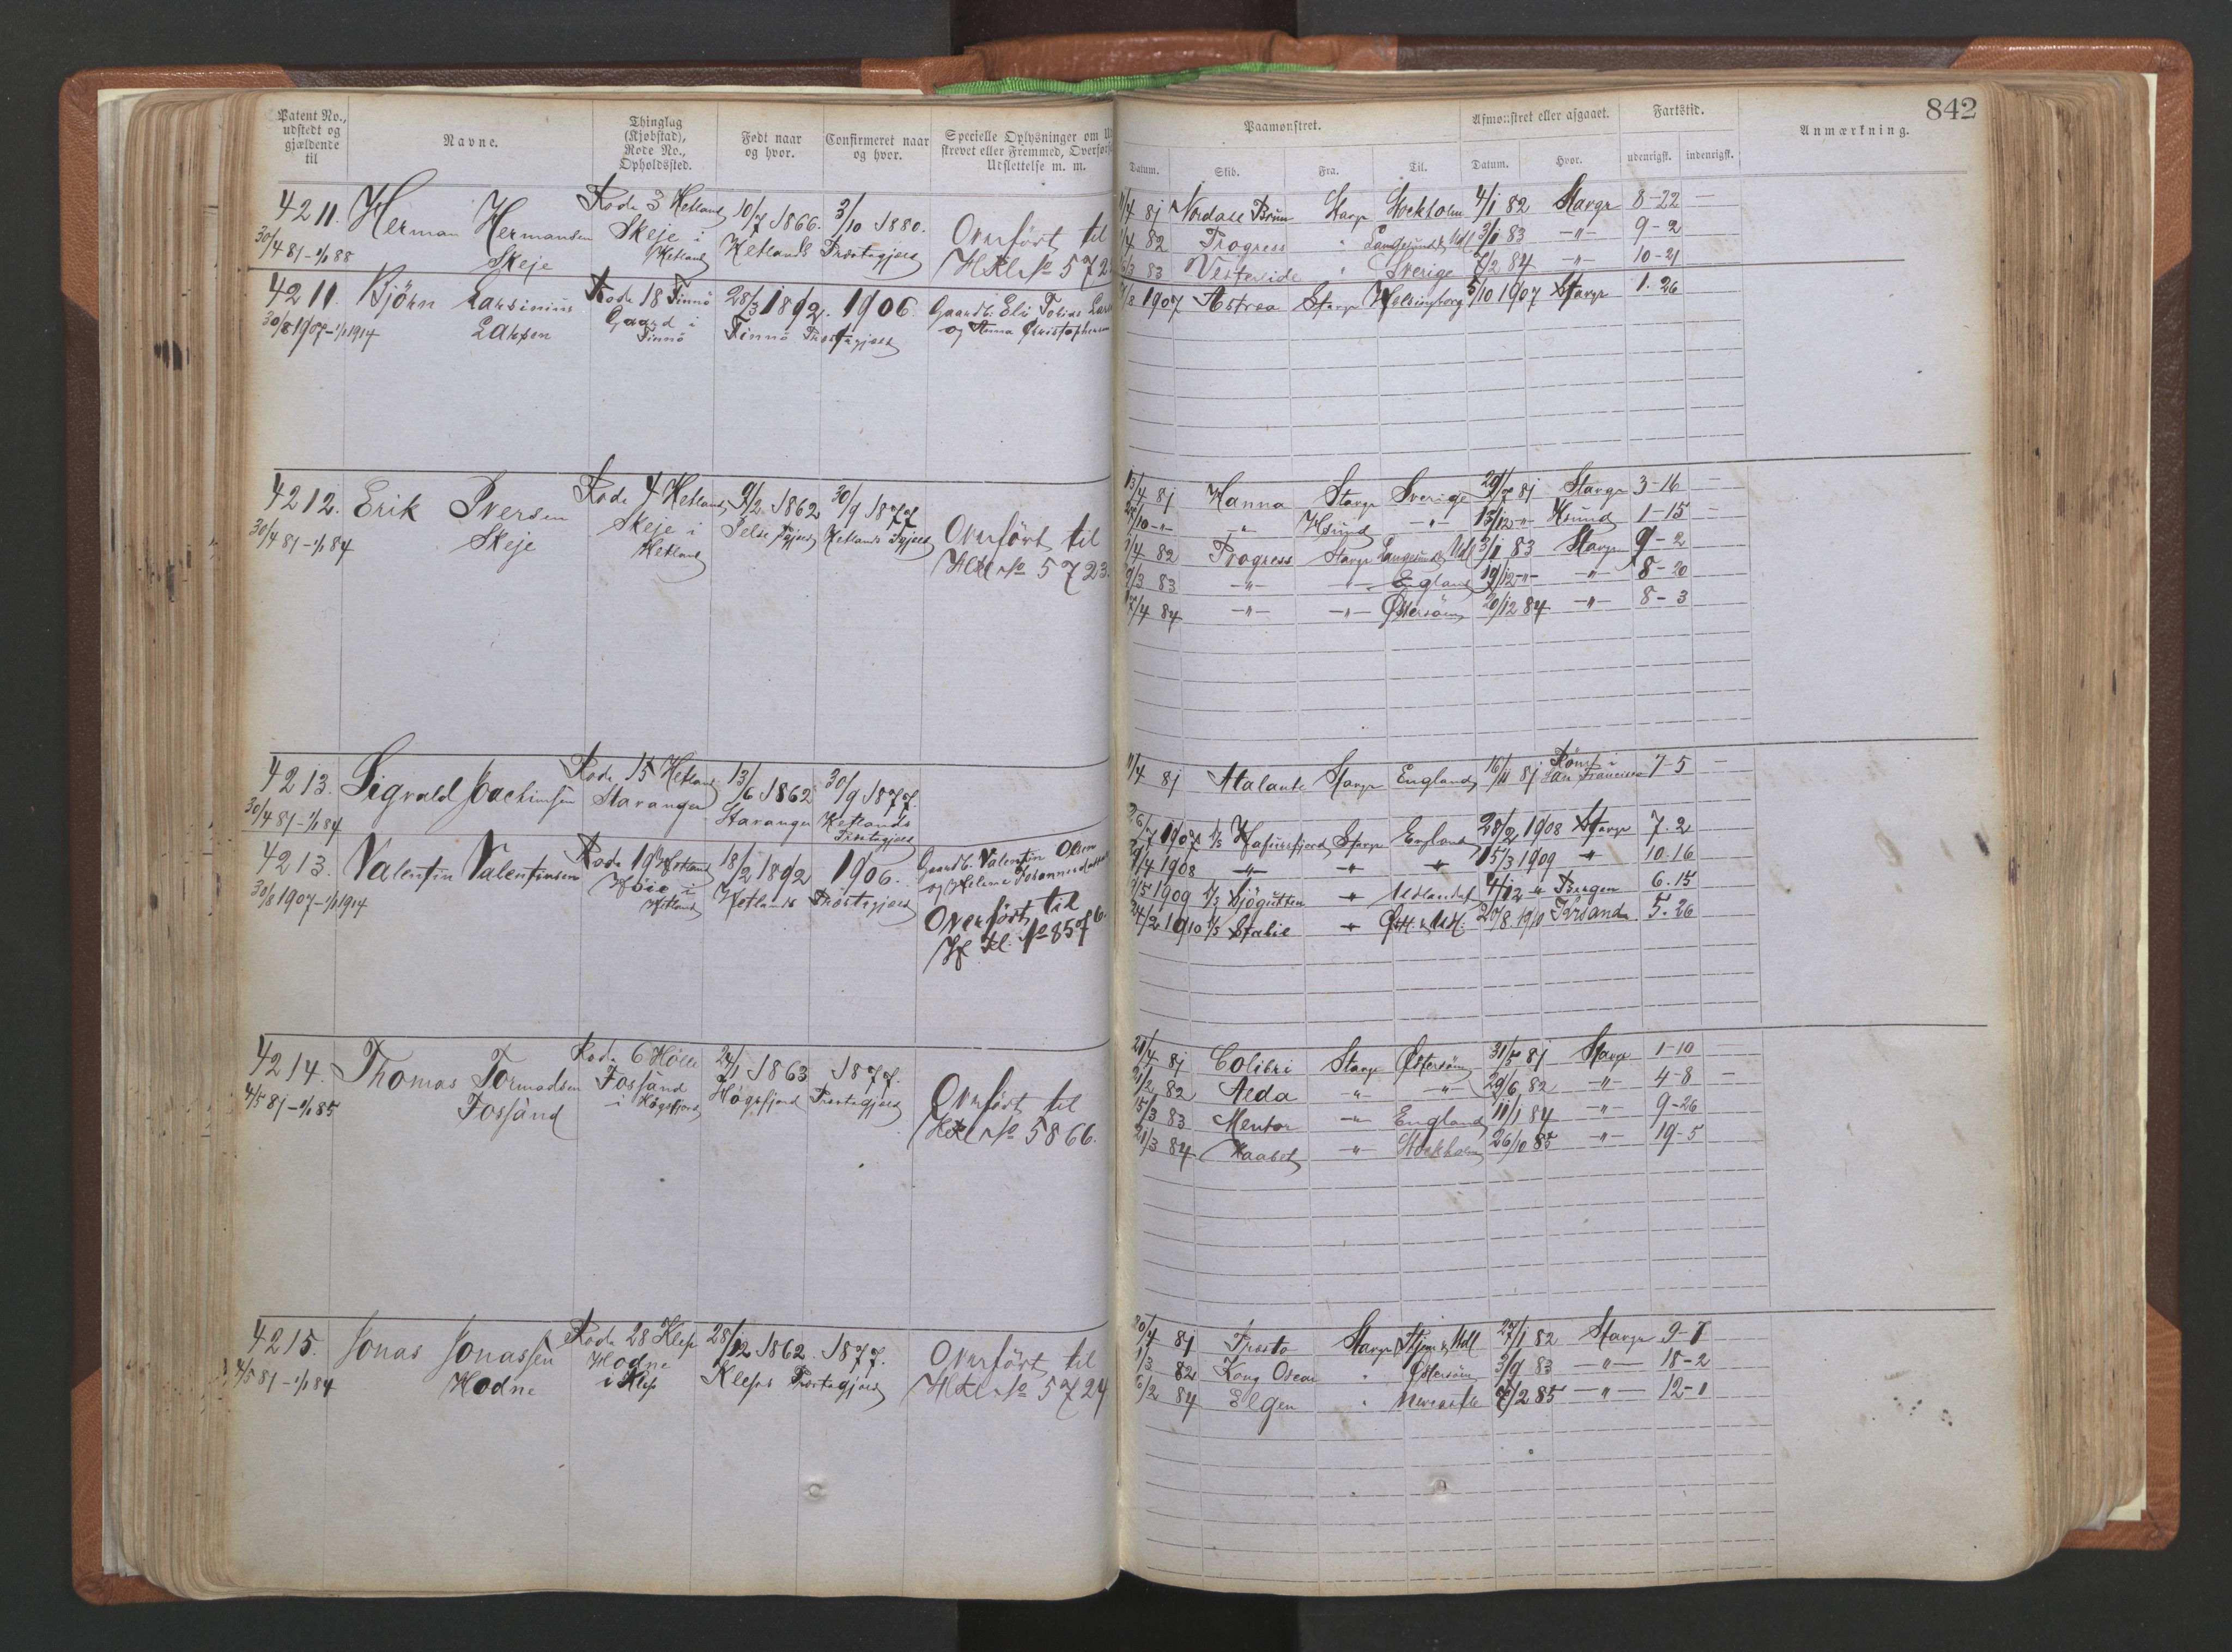 842
Patent No., udstedt og gjældende til
Navne.
Thinglag (Kjøbstad), Rode No., Opholdssted.
Født naar og hvor.
Confirmeret naar og hver.
Specielle Oplysninger om
strevet eller Fremmed,
Udslettelse m. m.
Paamønstret.
Afmønstret eller afgaaet.
Fartstid.
Anmærkning.
Datum. Skib. Fra. Til. Datum. Hvor. udenrigsk. indenrigsk.
4211. Herman Hermansen Rode 3 Hetland 10/7 1866. 3/10 1880.
30/4 81 - 1/1 88 Skeje Skeje i Hetland Hetlands Præstegjæld Overført til
4211. Bjørn Larsinius Rode 18 Finnø 28/3 1892. 1906. Gaardb. Eli Tobias
30/8 1907 - 1/1 1914 Larsen Gaard i Finnø Finnø Præstegjæld og Anna Christophersen
4/4 81 Nordahl Brun Stavgr Stockholm 4/1 82 Stavgr 8-22 —
82 Progress " Langesund & Udl 3/1 83 —"— 9-2
83 Vesterlide " Sverige 7/2 84 —"— 10-21
1907 Astrea Stavgr Helsingborg 5/10 1907 Stavgr 1. 26
4212. Erik Iversen Rode 4 Hetland 9/2 1862 30/9 1877
30/4 81 - 1/1 84 Skeje Skeje i Hetland Hetlands Pgjæld Overført til
H Kl No 5723.
13/4 81 Hanna Stavgr Sverige 29/7 81 Stavgr 3-16 —
/10 -"- —"— Hsund —"— 13/12 -"- Hsund 1-15 —
/4 82 Progress Stavgr Langesund & Udl 3/1 83 Stavgr 9-2
9/3 83 —"— —"— England 19/12 -"- —"— 8-20
17/4 84 —"— —"— Østersøen 20/12 84 —"— 8-3
4213. Sigvald Joachimsen Rode 15 Hetland 13/6 1862 30/9 1877.
30/4 81 - 1/1 84 Stavanger Stavanger Hetlands Præstegjæld
4213. Valentin Valentinsen Rode 19 Hetland 18/2 1892 1906. Gaardb. Valentin Olsen
30/8 1907 - 1/1 1914 Høie i Hetland Hetlands Præstegjæld og Helene
Overført til
11/4 81 Atalante Stavgr England 16/11 81 Rømt i San Francisco 7-5 —
26/7 1907 Hafursfjord Stavgr England 28/2 1908 Stavgr 7. 2
/4 1908 —"— " " 15/3 1909 " 10. 16
/5 1909 Sjøgutten " Udlandet 4/12 " Bergen 6. 15
24/2 1910 Stabil " 20/8 1910 Krsand 5. 26
4214. Thomas Tormodsen Rode 6 Hølle 24/1 1863 1877.
4/5 81 - 1/1 85 Fossand Fossand i Høgsfjord Høgsfjord Præstegjæld Overført til
H Kl No 5866.
21/4 81 Colibri Stavgr Østersøen 31/5 81 Stavgr 1-10 —
21/2 82 Alda —"— —"— 29/6 82 —"— 4-8 —
15/3 83 Mentor —"— England 11/1 84 —"— 9-26
21/3 84 Haabet —"— Stockholm 26/10 85 —"— 19-5
4215. Jonas Jonassen Rode 28 Klep 28/12 1862 1877.
4/5 81 - 1/1 84 Hodne Hodne i Klep Kleps Præstegjæld Overført til
H Kl No 5724
20/4 81 Presto Stavgr 27/1 82 Stavgr
1/3 82 Kong Oscar " Østersøen 3/9 83 —"— 18-2
6/2 84 Elgen " Newcastle 7/2 85 —"— 12-1